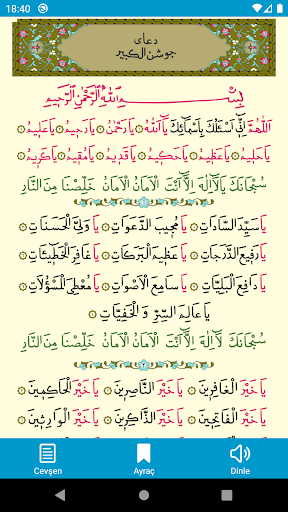 18:40
دعاى
جوشن الكبير
بِسْمِ اللّٰهِ الرَّحْمٰنِ الرَّحِيمِ
اَللّٰهُمَّ اِنِّى اَسْئَلُكَ بِاَسْمَائِكَ يَا اَللّٰهُ يَا رَحْمٰنُ يَا رَحِيمُ يَا عَلِيمُ
يَا حَلِيمُ يَا عَظِيمُ يَا حَكِيمُ يَا قَدِيمُ يَا مُقِيمُ يَا كَرِيمُ
سُبْحَانَكَ يَا لَا اِلٰهَ اِلَّا اَنْتَ الْاَمَانُ الْاَمَانُ خَلِّصْنَا مِنَ النَّارِ
يَا سَيِّدَ السَّادَاتِ يَا مُجِيبَ الدَّعَوَاتِ يَا وَلِىَّ الْحَسَنَاتِ
يَا رَفِيعَ الدَّرَجَاتِ يَا عَظِيمَ الْبَرَكَاتِ يَا غَافِرَ الْخَطِيئَاتِ
يَا دَافِعَ الْبَلِيَّاتِ يَا سَامِعَ الْاَصْوَاتِ يَا مُعْطِىَ الْمَسْؤُلَاتِ
يَا عَالِمَ السِّرِّ وَ الْخَفِيَّاتِ
سُبْحَانَكَ لَا اِلٰهَ اِلَّا اَنْتَ الْاَمَانُ الْاَمَانُ خَلِّصْنَا مِنَ النَّارِ
٢
يَا خَيْرَ الْغَافِرِينَ يَا خَيْرَ النَّاصِرِينَ يَا خَيْرَ الْحَاكِمِينَ
يَا خَيْرَ الْفَاتِحِينَ يَا خَيْرَ الذَّاكِرِينَ يَا خَيْرَ الْوَارِثِينَ
Cevşen Ayraç Dinle